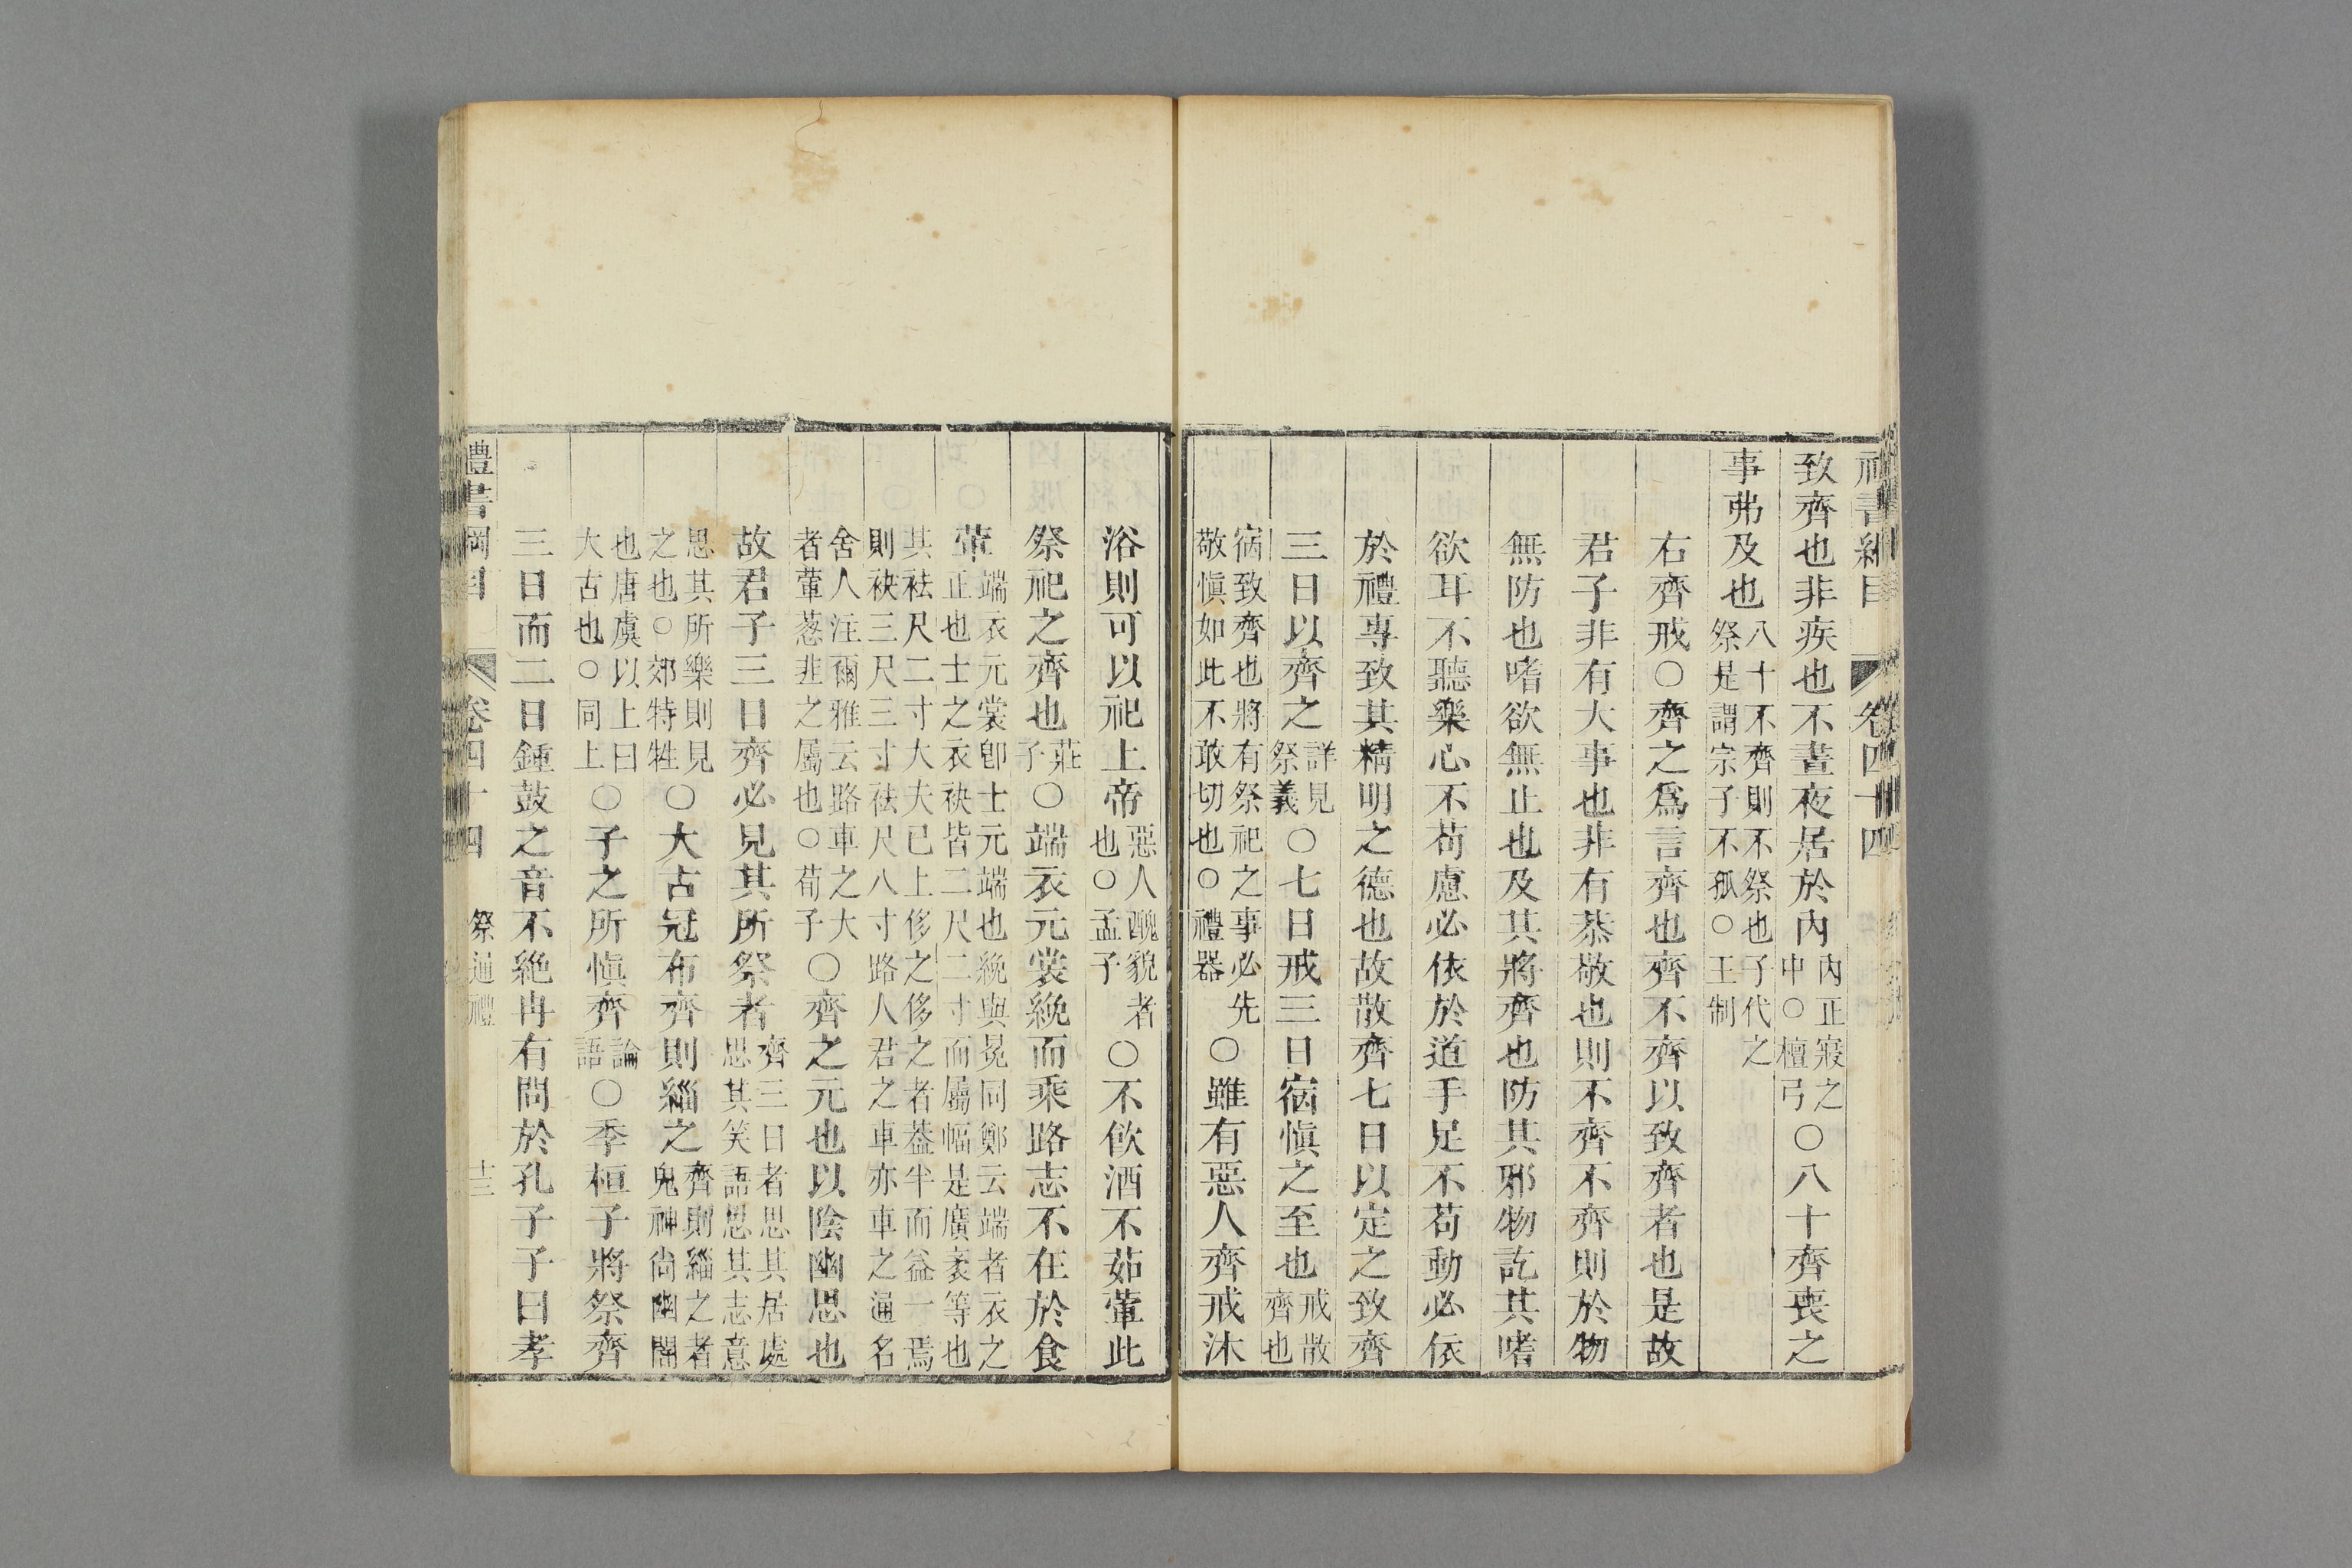 禮書綱目 卷四十四
致齊也非疾也不晝夜居於內內正寢之中○檀弓○八十齊喪之
事弗及也八十不齊則不祭也子代之祭是謂宗子不孤○王制
右齊戒○齊之爲言齊也齊不齊以致齊者也是故
君子非有大事也非有恭敬也則不齊不齊則於物
無防也嗜欲無止也及其將齊也防其邪物訖其嗜
欲耳不聽樂心不苟慮必依於道手足不苟動必依
於禮專致其精明之德也故散齊七日以定之致齊
三日以齊之詳見祭義○七日戒三日宿愼之至也戒散齊也
宿致齊也將有祭祀之事必先敬愼如此不敢切也○禮器○雖有惡人齊戒沐
浴則可以祀上帝惡人醜貌者也○孟子○不飲酒不茹葷此
祭祀之齊也莊子○端衣元裳絻而乘路志不在於食
葷端衣元裳卽士元端也絻與冕同鄭云端者衣之正也士之衣袂皆二尺二寸而屬幅是廣袤等也
其袪尺二寸大夫已上侈之侈之者葢半而益一焉則袂三尺三寸袪尺八寸路人君之車亦車之通名
舍人注爾雅云路車之大者葷葱韭之屬也○荀子○齊之元也以陰幽思也
故君子三日齊必見其所祭者齊三日者思其居處思其笑語思其志意
思其所樂則見之也○郊特牲○大古冠布齊則緇之齊則緇之者鬼神尚幽闇
也唐虞以上曰大古也○同上○子之所愼齊論語○季桓子將祭齊
三日而二日鍾鼓之音不絶冉有問於孔子子曰孝
禮書綱目 卷四十四 祭通禮 十三